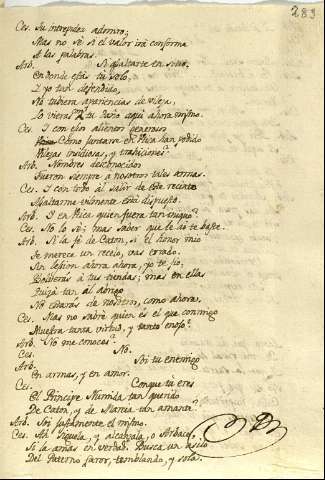 283
Ces. Su intrepidez admiro;
Mas no sé si el valor irá conforme
A las palabras.
Arb. Si asaltarte en sitio,
En donde estás tu solo,
I yo tan defendido,
No tubiera apariencias de vileza,
Lo vieras tu Daño aqui ahora mismo.
Ces. I con esos alientos generosos
Como juntarse en Utica han podido
Vilezas insidiosas, y traiciones?
Arb. Nombres desconocidos
Fueron siempre a nosotros tales
Ces. I con todo al salir de este recinto
Asaltarme vilmente está dispuesto.
Arb. I en Utica quien fuera tan iniquo?
Ces. No lo sé; mas saber que le ai te baste.
Arb. Si la fé de Caton, si el honor mio
Se merece un recelo, vas errado.
Sin lesion ahora ahora, yo te fio,
Bolverás a tus tiendas; mas en ellas
Quizá tan al abrigo
No estarás de nosotros, como ahora.
Ces. Mas no sabré quien es el que conmigo
Muestra tanta virtud, y tanto enojo?
Arb. No me conoces?
Ces. No.
Arb. Soi tu enemigo
En armas, y en amor.
Ces. Conque tu eres
El Principe Numida tan querido
De Caton, y de Marcia tan amante?
Arb. Soi justamente el mismo.
Ces. Ah! Siguela, y alcanzala, o Arbace,
Si la amas en verdad. Busca un asilo
Del Paterno furor, temblando, y sola.